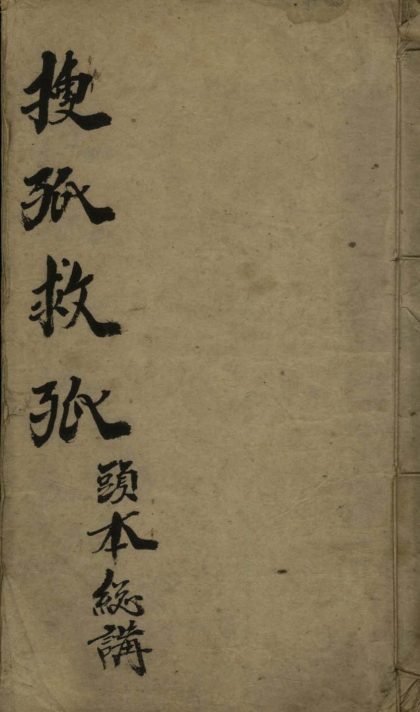 搜孤救孤
頭本總講